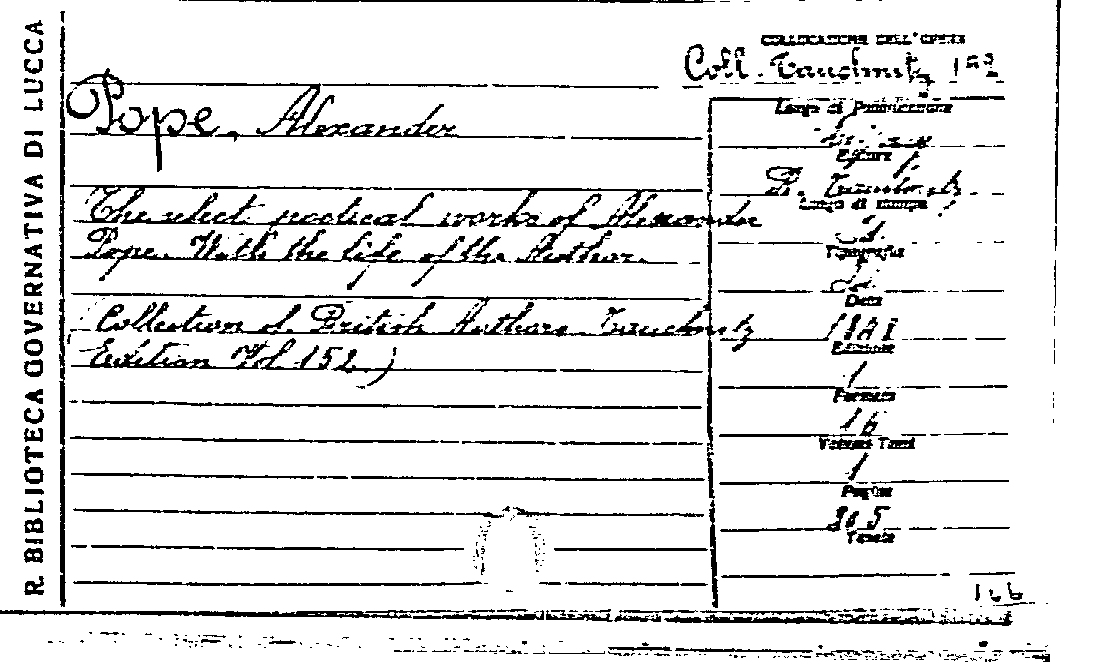 R. BIBLIOTECA GOVERNATIVA DI LUCCA
COLLOCAZIONE DELL'OPERA
Coll. Tauchnitz 152
Pope, Alexander
The select poetical works of Alexander
Pope. With the life of the Author.
(Collection of British Authors Tauchnitz
Edition Vol. 152)
Luogo di Pubblicazione
Editore
B. Tauchnitz
Luogo di stampa
Id.
Tipografia
Id.
Data
Edizione
/
Formato
16
Volumi Tomi
/
Pagine
Tavole